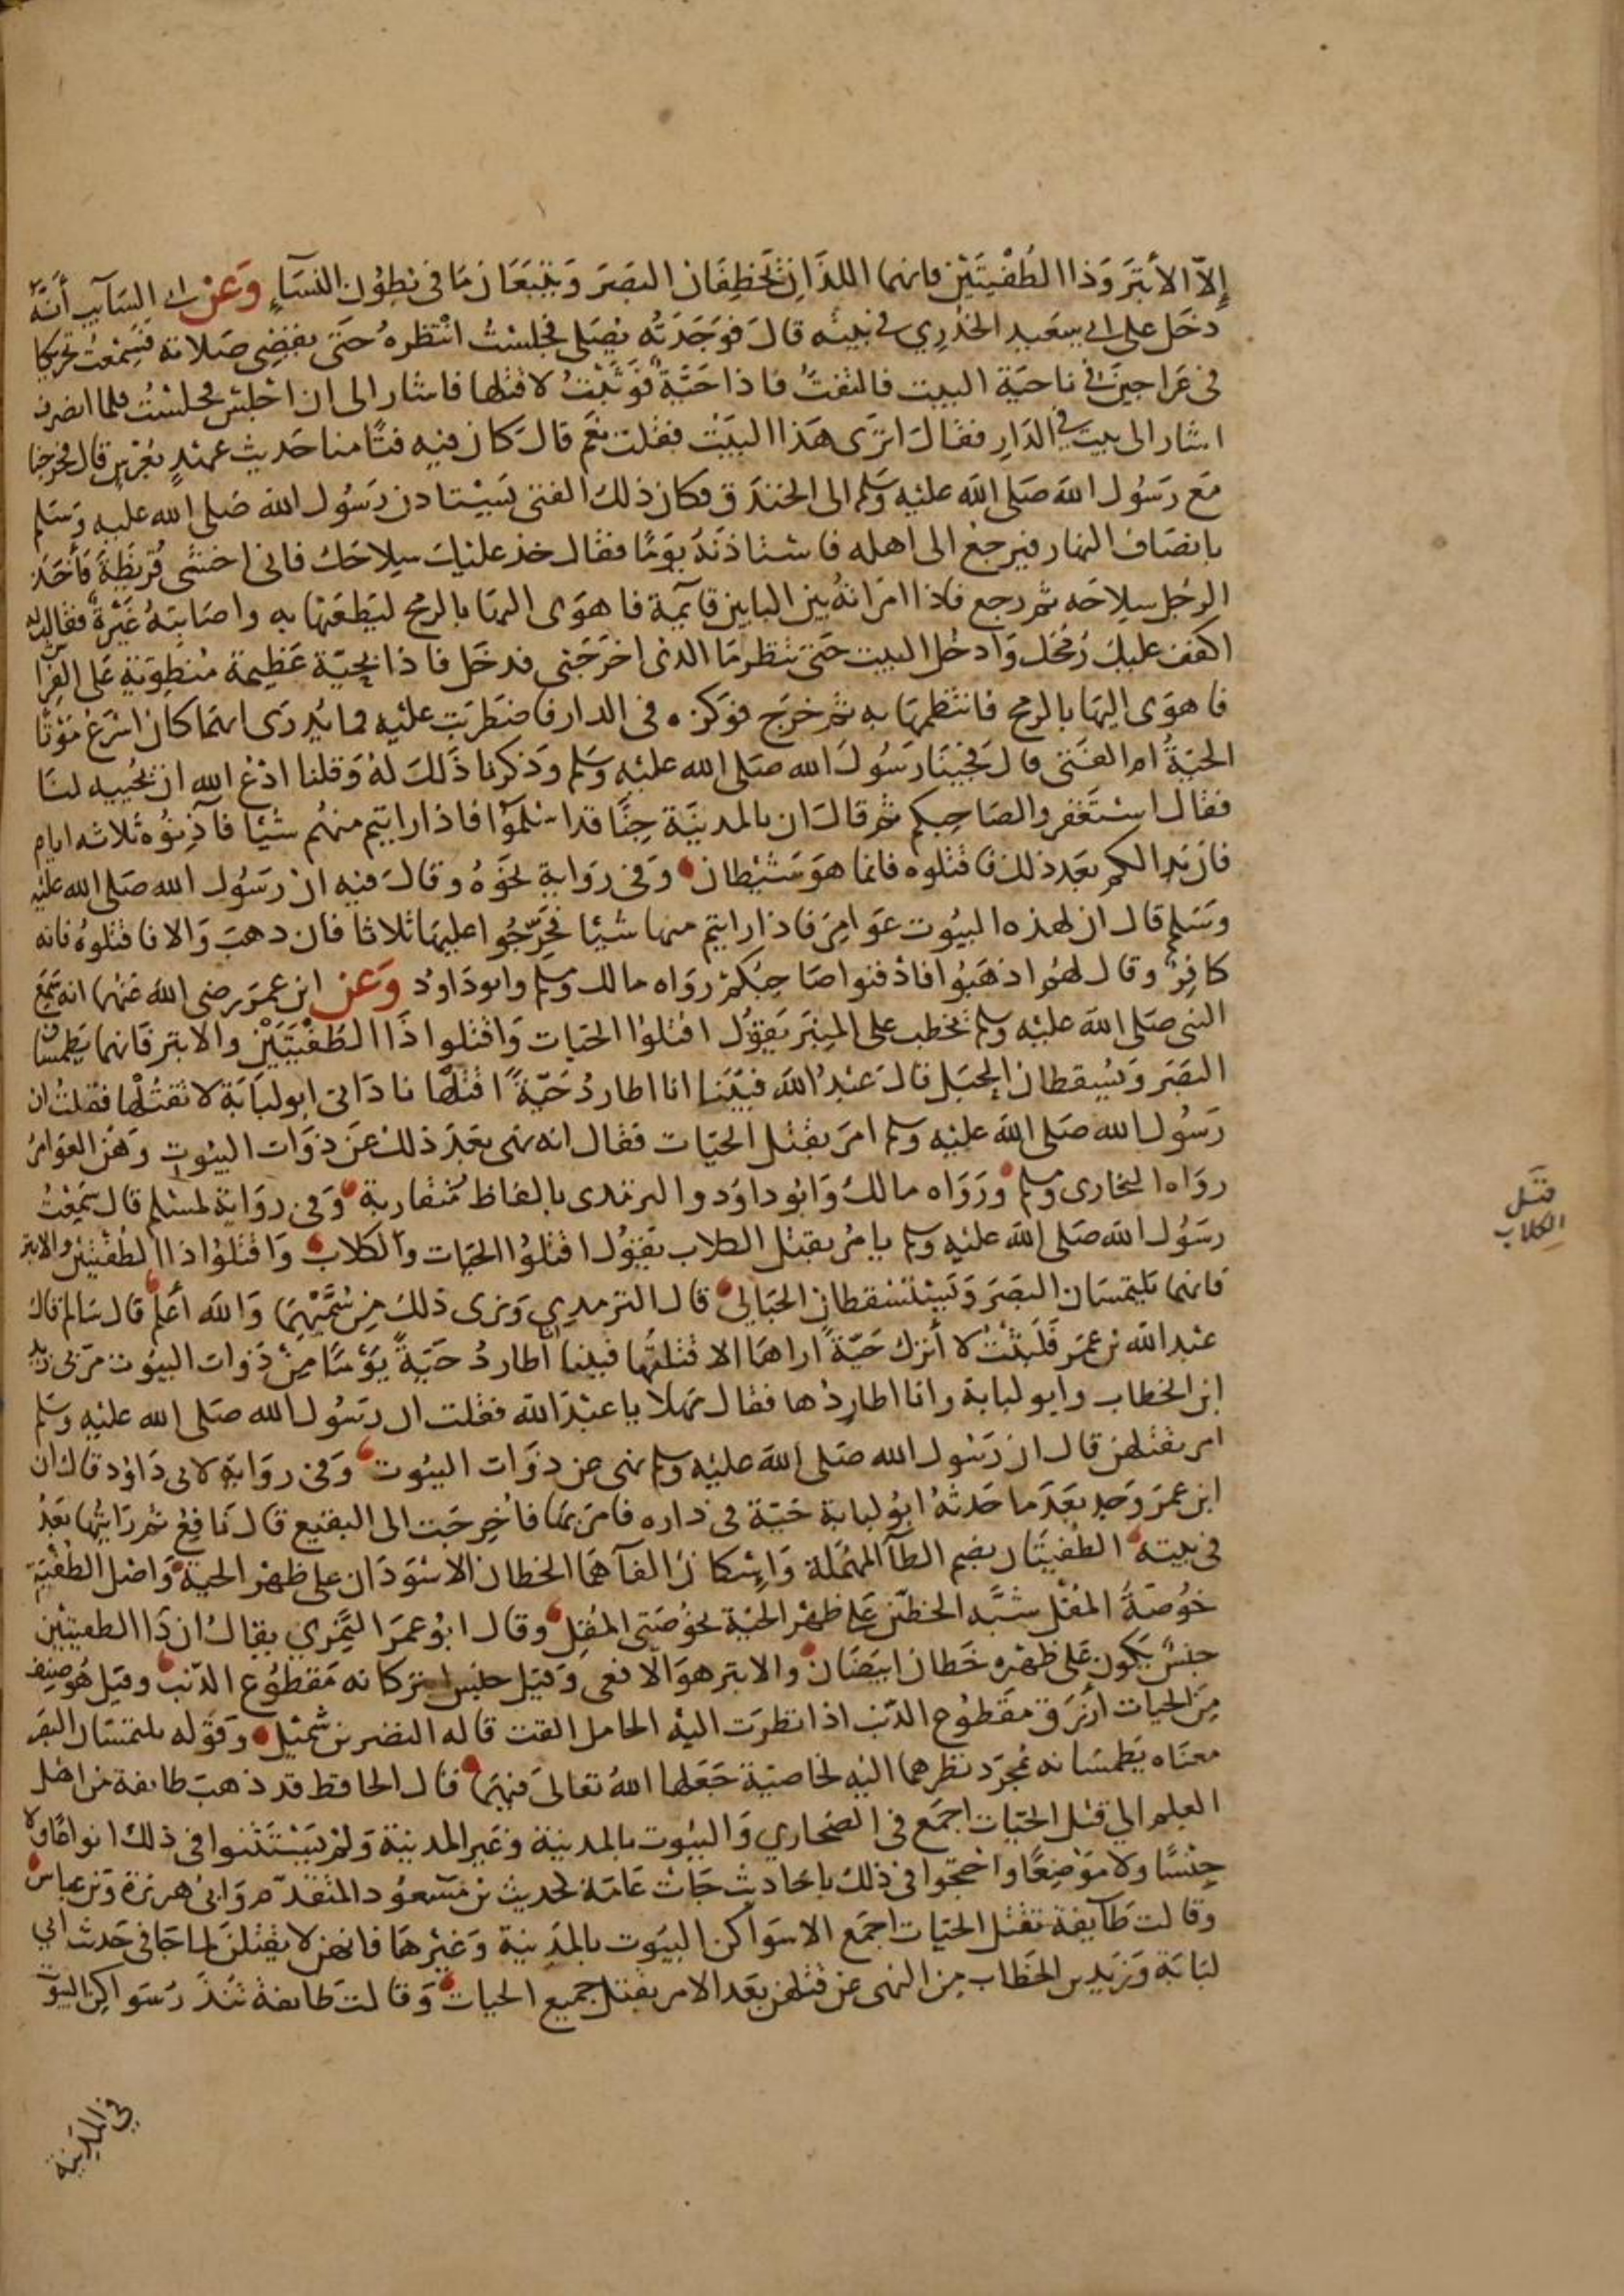 إلاّ الأبتر وذا الطُفْيتَيْن فانهما اللذَان تَخطِفَان البَصَرَ وَيَتبَعَان مَا في بُطِوُنِ النسَآءِ وَعَن ابى السَآيب أنَّهُ
دخَل على ابى سعَيد الخدْرِي في بيته قالَ فوَجَدَتُه يُصَلى فجلستُ انْتظرهُ حَتى يقضِى صَلاته فسَمعْتُ تحريكا
فى عَراجينَ في ناحيَة البيت فالتفتُّ فاذا حَيَّةٌ فوَثبْتُ لاقتلها فاشار الى ان اجْلِسْ فجلسْتُ فلما انصرف
اشار الى بيت في الدَارِ فقالَ اترَى هَذا البَيْت فقلت نعَم قالَ كان فيه فتًا منا حَديث عهْدٍ بعُرْس قال فخرجنا
مَع رَسُول اللهَ صَلى الله عليْه وَسَلم الى الخندَق فكان ذلك الفتى يَسْتاذن رَسُول الله صَلى الله عليه وَسَلم
بانصَاف النهار فيَرجعْ الى اهله فاستاذنَهُ يوَمًا فقال خذ عليْكَ سِلاحَك فانى اخشى قُريْظَةَ فأخَذ
الرجُل سِلاحَه ثم رجع فاذا امَراتهُ بيْن البابين قآيمة فاهوَى اليهَا بالرمح ليَطعَنهَا به واصَابتهُ غَيْرةٌ فقالت له
اكفف عليكَ رُمْحَك وَادخُل البيت حَتى تنظر مَا الذى اخرَجَنى فدخَل فاذا بحيّة عَظيمة مُنطِويَةٍ عَلى الفِرَاش
فاهوَى اليْهَا بالرمح فانتظمهَا به ثم خرَج فوَكزه فى الدار فاضطرَبَت عليْه فما يُدرَى ايهمَا كان اسْرَعُ مَوْتًا
الحيّةُ ام الفتَى قالَ فجيْنَا رَسُولَ الله صَلى الله عليْه وَسَلم وَذكرنا ذَلك لهُ وَقلنا ادْعُ الله ان يُحْييه لنَا
فقال اسْتغفروا لصَاحِبكم ثم قالَ ان بالمدينَة جِنًّا قدا سْلمَوُا فاذا رايتم منهُم شيْئا فآذِنوُه ثلاثه ايام
فان بَدا لكم بَعَد ذلك فاقتلوه فانما هوَ شَيْطان وَفى رَوايةٍ نحوَهُ وقالَ فيه ان رَسُول الله صَلى الله عليْه
وَسَلم قال ان لهذه البيُوت عَوامِرَ فاذا رايتم منها شيْئا فحَرِّجُوا عليهَا ثلاثا فان ذهبَ وَالا فاقتلوُهُ فانه
كافِرٌ وقال لهُمْ اذهَبُوا فادْفنوا صَاحِبُكمْ روَاه مالك ومسلم وابو دَاوُد وَعَن ابن عمَرَ رضى اللهَ عَنهما انه سَمِعَ
النبى صَلى اللهَ عليْه وسلم يخطب على المِنبَر يَقوُل اقتلوا الحيَات وَاقتلوا ذَا الطُفيَتيْن والابتر فَانهما يَطمِسَان
البَصَرَ وَيُسِقطان الحَبَل قالَ عَبْدُ اللهَ فبَيْنا انا اطاردُ حَيّةً اقتلها نادَانى ابو لبَابَة لا تقتُلها فقلتُ ان
رَسُول الله صَلى اللهَ عليْه وسلم امرَ بقتل الحيَات فقال انه نهى بعَدَ ذلك عَن ذوَات البيُوت وَهَن العَوامرُ
روَاه البخارى ومسلم وَرَوَاه مالك وَابُو داوُد والترمذى بالفاظ مُتقاربة وَفى روَاية لمسْلم قال سَمِعْتُ
رسُول اللهَ صَلى اللهَ عليْه وسلم يامُر بقتل الكلاب يَقوُل اقتلوُا الحيَات وَالكلابَ وَاقتلوُا ذا الطُفْيتيْن والابتر
فانهما يَلتمسَان البَصَرَ وَيَسْتسْقطان الحَبَالى قال الترمذِي وَنرى ذلكَ مِن سُمِّيْهِمَا وَالله أعَلم قال سَالم قالَ
عبْد الله بن عمَر فَلَبثْتُ لا أترك حَيّةً اراهَا الا قتلتُها فبينا أطاردُ حَيّةً يَوْمًا مِنْ ذَوات البيُوت مرَّ بى زيد
ابن الخطاب وابو لبابة وانا اطاردُها فقال مَهلا يا عبْد الله فقلت ان رَسُول الله صَلى الله عليْه وَسَلم
امر بقتلهن قال ان رَسُول الله صَلى الله عليْه وسلم نهى عن ذوَات البيُوت وَفى روَايةٍ لابى دَاوُد قال ان
ابن عمَرَ وَجد بعَدَ ما حَدثهُ ابوُ لبابة حَيّة فى داره فامرَ بهَا فاُخرِجَت الى البقيع قال نَافِعٌ ثم رَايتُها بَعْدُ
فى بيته الطُفيتَان بضم الطآ المهمَلة وَإسْكان الفآ همَا الخطان الاسْوَدَان على ظهْر الحية وَاصْل الطُفْيَة
خوُصَةُ المُقْل شبَّه الخطّين عَلى ظهْر الحيّة بخوُصَتى المُقِل وقال ابوُ عمَرَ النَّمَرِي يقالُ ان ذَا الطفيتيْن
جنسٌ يَكون عَلى ظهْره خَطان ابيَضَان والابتر هوَ الافعى وَقيَل جنس ابتر كانه مَقطوُع الذنَب وقيَل هُو صِنف
مِنَ الحيات أزرَق مقَطوُع الذنب اذا نظرَت اليْه الحامل القت قاله النضر بن شميْل وقوَله يلتمسَان البصَر
معناه يَطمسَانه بمُجرّد نظرهما اليْه لخاصيَّة جَعَلها اللهُ تعالىَ فيهِمَا قال الحافظ قد ذهبَ طايفة من اهْل
العلِم الى قتل الحيّات اجمَع فى الصَحاري وَالبيُوت بالمدينة وَغيَر المدينة وَلمْ يَسْتثنوا فى ذلك انواعًا ولا
جنْسًا ولا مَوْضِعًا واحْتجّوا فى ذلكَ باحَاديث جَاتْ عَامّة لحديث بن مَسْعوُد المتقدّم وَابى هريَرة وَبن عباس
وقالت طَآيفة تقتل الحيّات اجمَع الا سَوَاكن البيُوت بالمَدينة وَغيْرهَا فانهن لا يقْتلنَ لما جَا فى حَديث ابي
لبَابَة وَزَيد بن الخَطاب مِن النهى عَن قتلهن بعَد الامر بقتل جميع الحيات وَقالتَ طايفة تنذَرُ سَوَاكن البيُوت
فى المدِينة
قتل
الكلاب